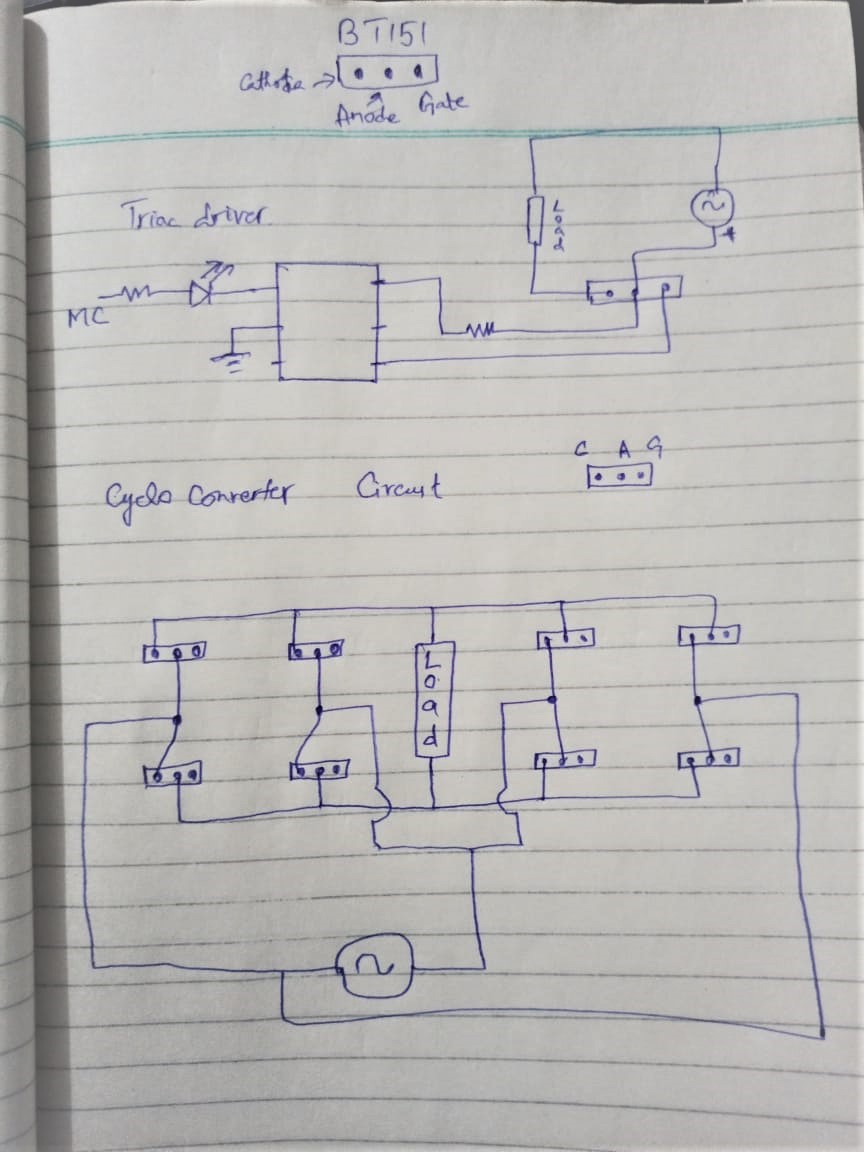 BT151
Cathode →
Anode Gate
Triac driver
Load
MC
C A G
Cyclo Converter Circuit
Load